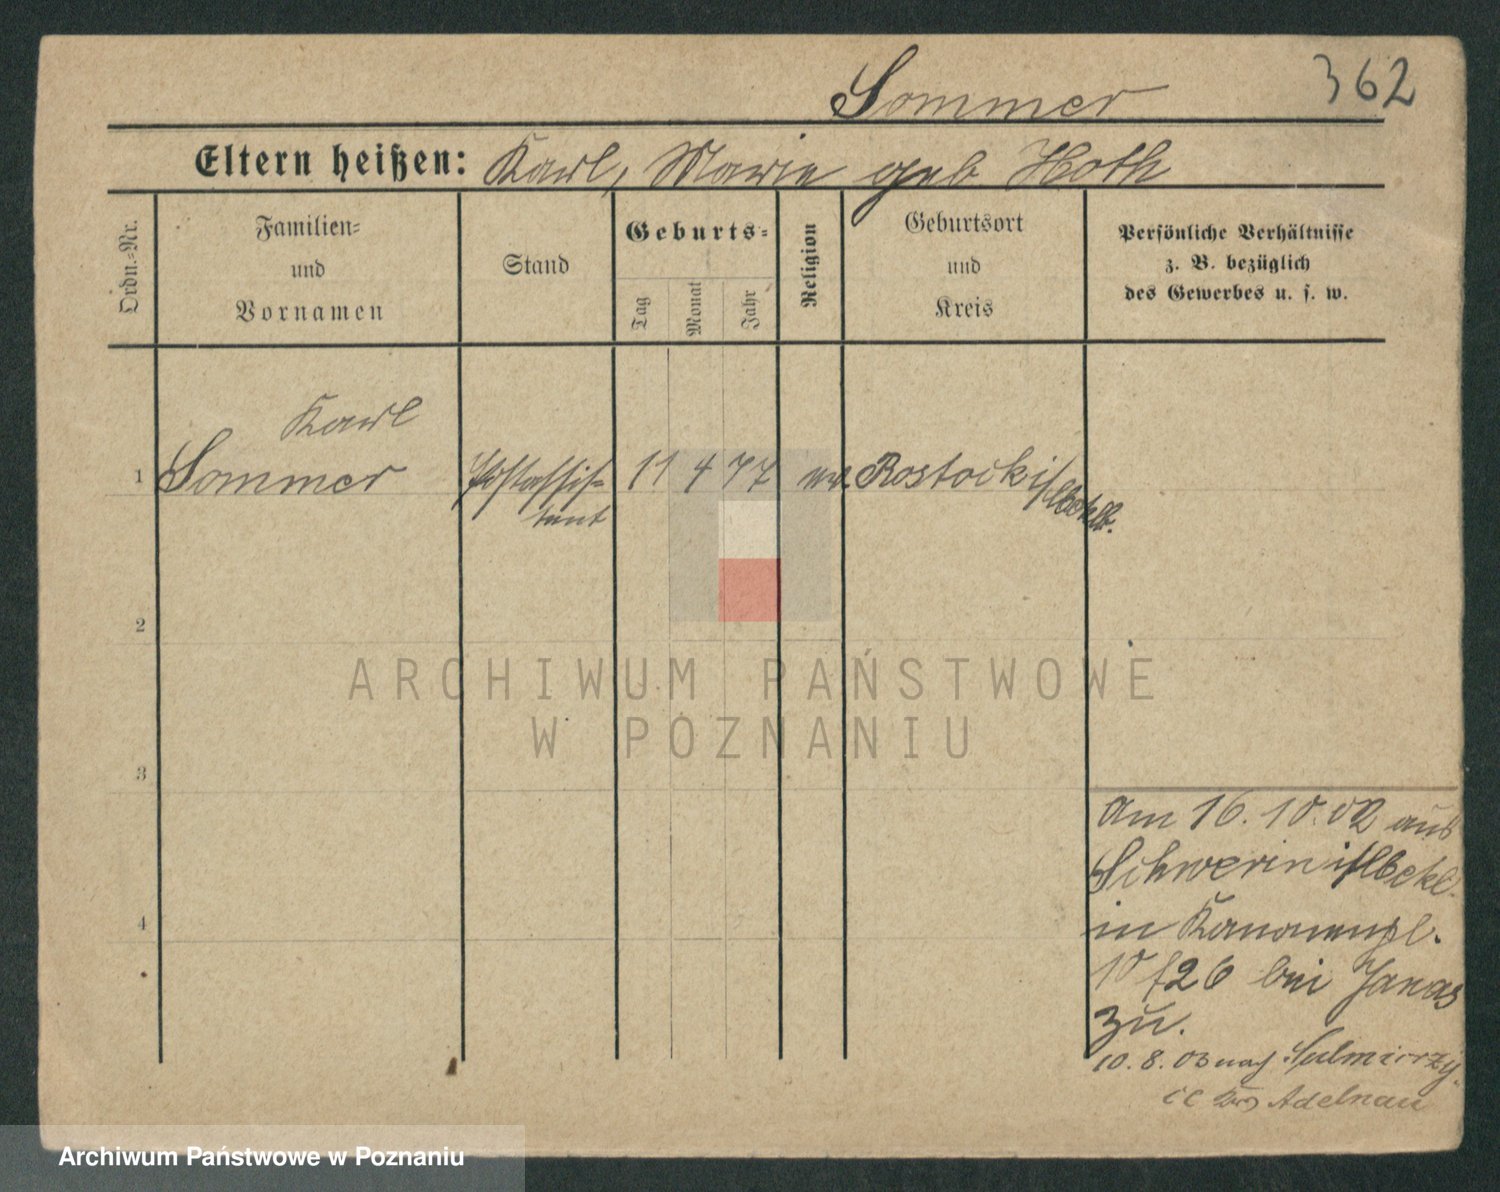 362
Sommer
Eltern heißen: Karl, Marie geb Hoth
Ordn.-Nr.
Familien-
und
Vornamen
Stand
Geburts-
Tag
Monat
Jahr
Religion
Geburtsort
und
Kreis
Persönliche Verhältnisse
z. B. bezüglich
des Gewerbes u. s. w.
Karl
1 Sommer Postassis- 11 4 77 Rostock i/Mecklb.
tent
2
3
4
ARCHIWUM PAŃSTWOWE
W POZNANIU
am 16.10.02 aus
Schwerin i/Meckl.
in Kanonenpl.
10 26 bei
zu.
10.8.03 nach
Adelnau
Archiwum Państwowe w Poznaniu